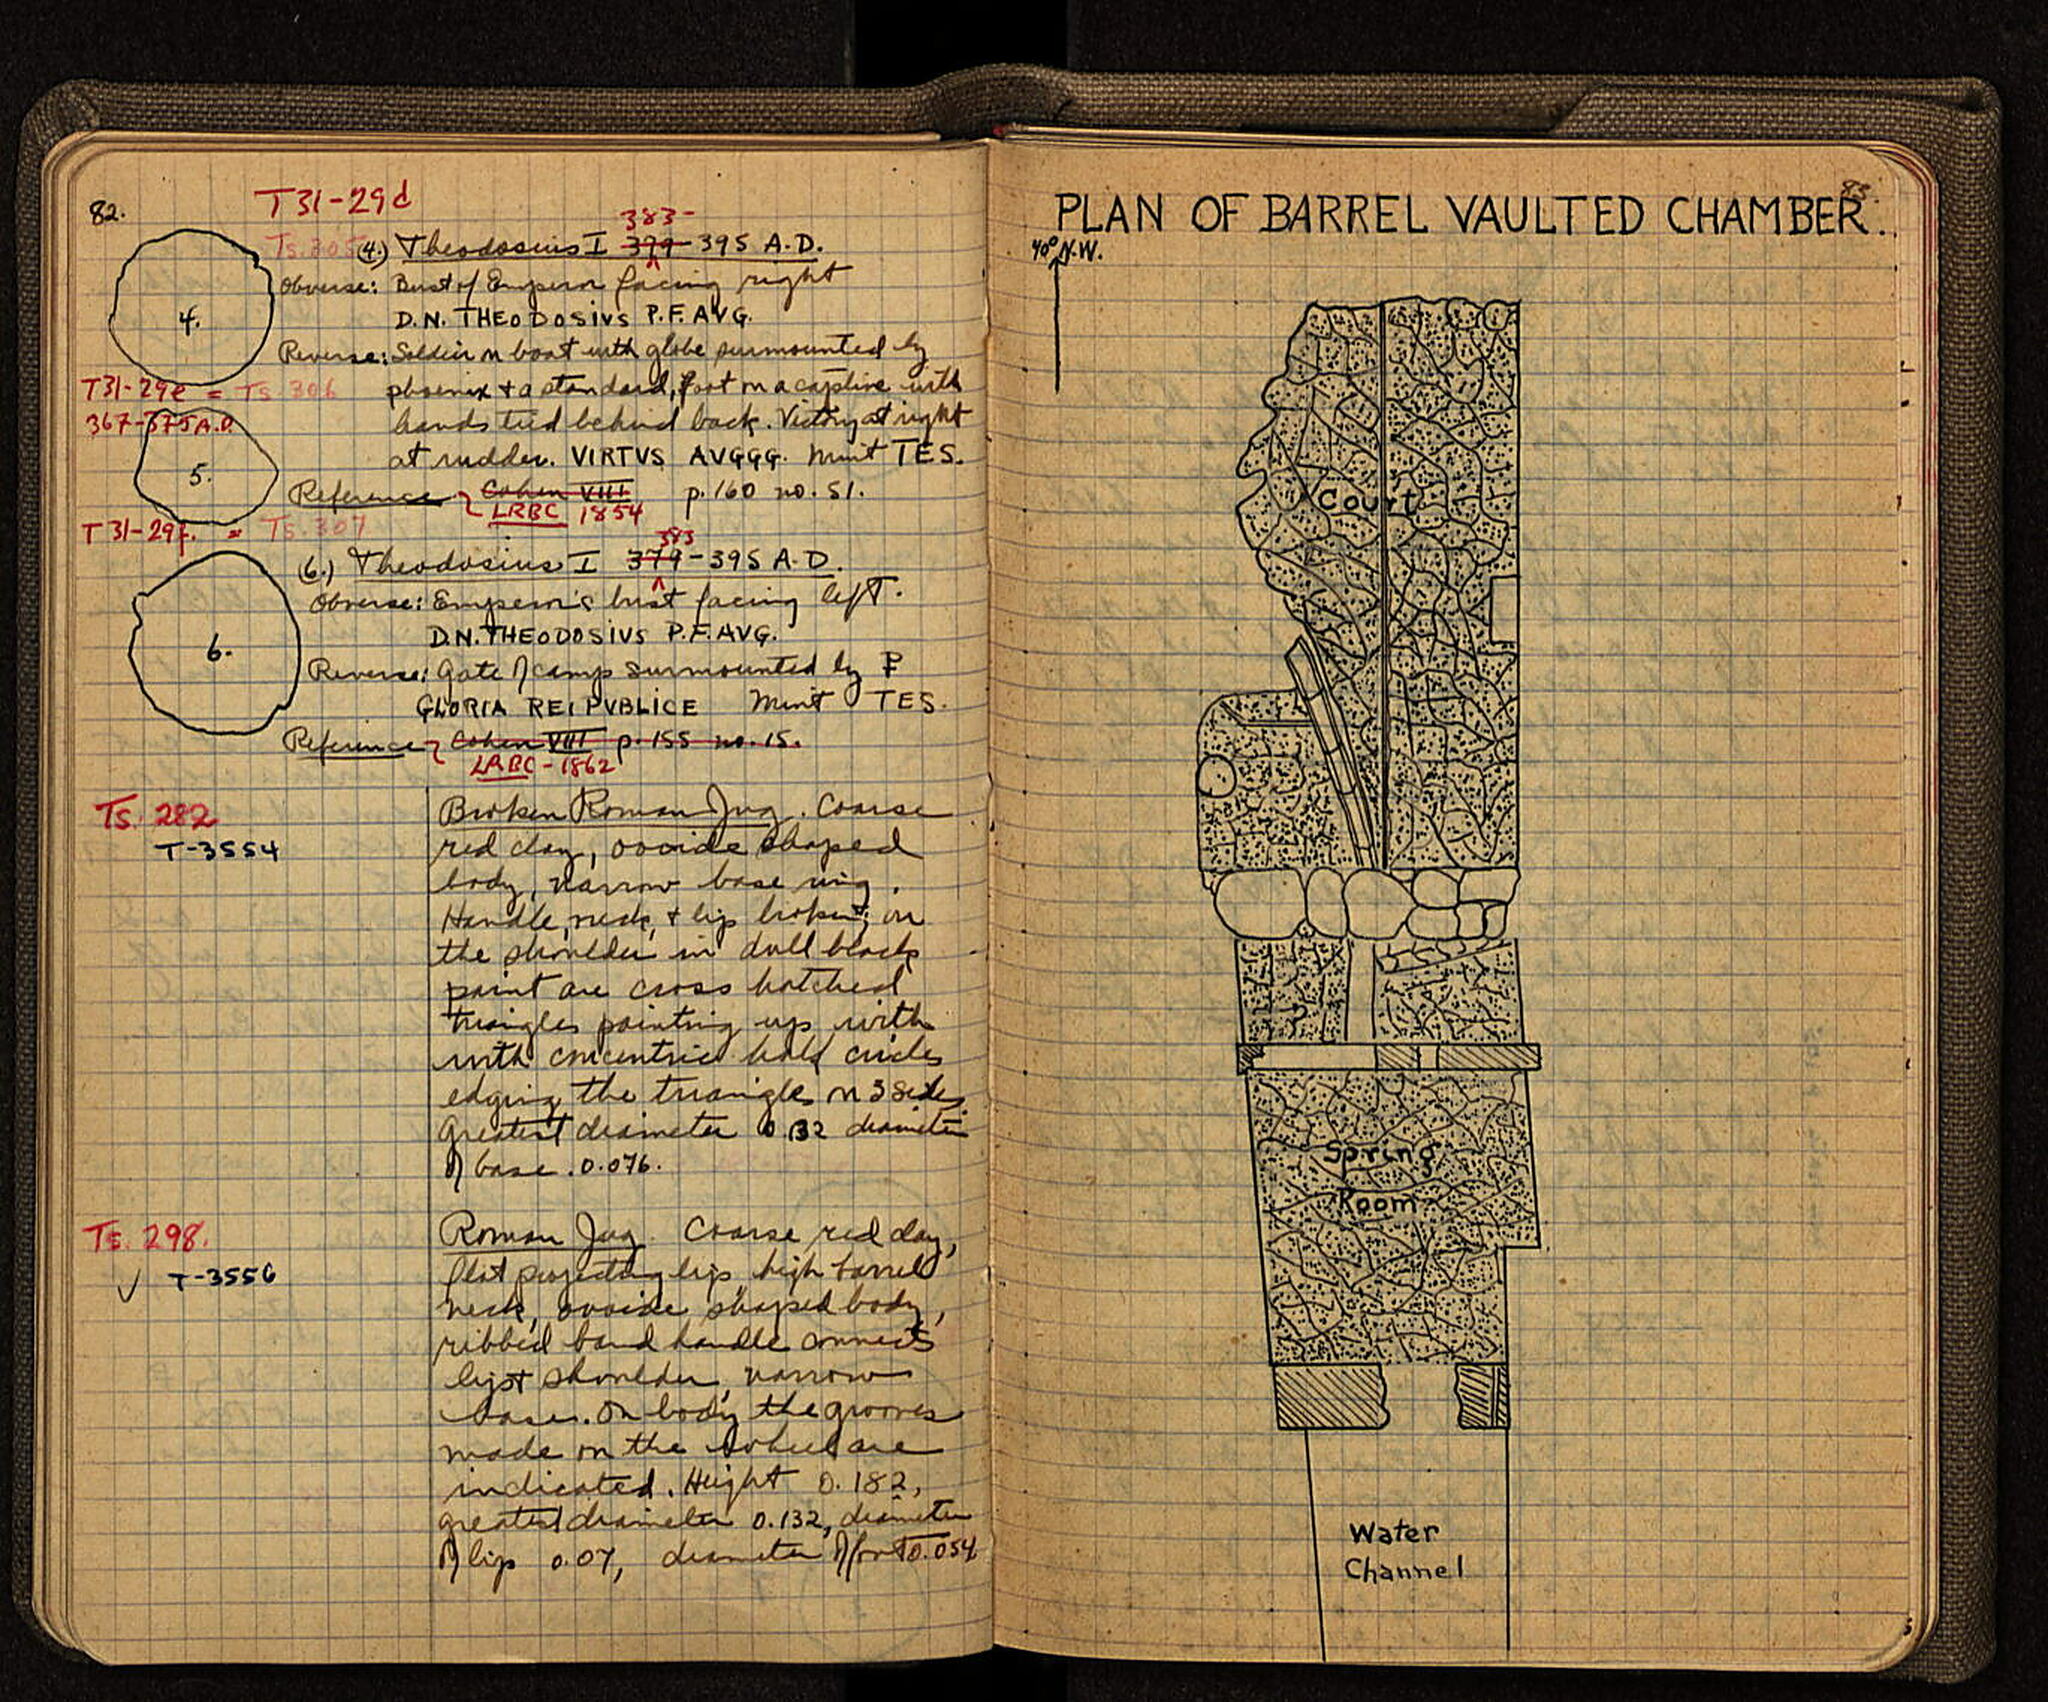 82.
T31-29d
383-
Ts. 305 (4.) Theodosius I 379-395 A.D.
Obverse: Bust of Emperor facing right
D.N. THEODOSIVS P.F. AVG.
4.
Reverse: Soldier on boat with globe surmounted by
T31-29e = Ts. 306
phoenix + a standard, foot on a captive with
367-375 A.D.
hands tied behind back. Victory at right
5.
at rudder. VIRTVS AVGGG. Mint TES.
Reference Cohen VIII p. 160 no. 51.
LRBC 1854
T31-29f. = Ts. 307
383
(6.) Theodosius I 379-395 A.D.
Obverse: Emperor's bust facing left.
D.N. THEODOSIVS P.F. AVG.
6.
Reverse: Gate of camp surmounted by
GLORIA REIPVBLICE Mint TES.
Reference Cohen VIII p. 155 no. 15.
LRBC - 1862
Ts. 282
T-3554
Broken Roman Jug. Coarse
red clay, ovoide shaped
body, narrow base ring.
Handle, neck, + lip broken; on
the shoulder in dull black
paint are cross hatched
triangles pointing up with
with concentric half circles
edging the triangles on 3 sides
Greatest diameter 0.132 diameter
of base. 0.076.
Ts. 298.
✓ T-3556
Roman Jug. Coarse red clay,
flat projecting lip, high barrel
neck, ovoide shaped body,
ribbed band handle connects
lip + shoulder, narrow
base. On body the grooves
made on the wheel are
indicated. Height 0.182,
greatest diameter 0.132, diameter
of lip 0.07, diameter of foot 0.054
83.
PLAN OF BARREL VAULTED CHAMBER.
40° N.W.
Court
Spring
Room
Water
Channel